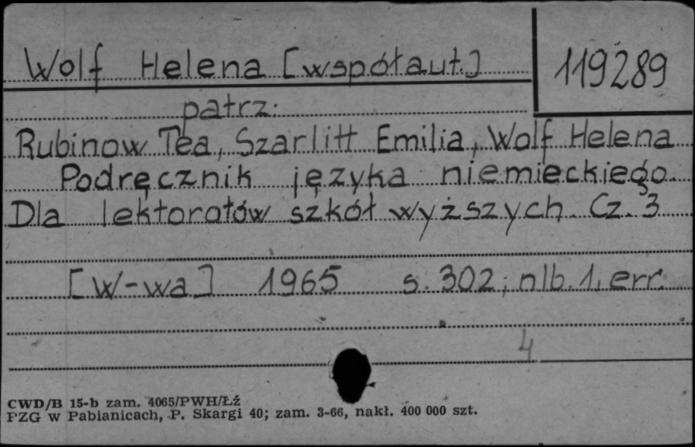 Wolf Helena [współaut.]
119289
patrz:
Rubinow Tea, Szarlitt Emilia, Wolf Helena
Podręcznik języka niemieckiego.
Dla lektoratów szkół wyższych. Cz. 3
[W-wa] 1965 s. 302, nlb. 1, err.
4
CWD/B 15-b zam. 4065/PWH/Łź
PZG w Pabianicach, P. Skargi 40; zam. 3-66, nakł. 400 000 szt.